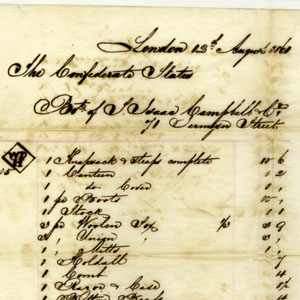 London 13th August 1861
The Confederate States
Bot. of S. Isaac Campbell & Co.
71 Jermyn Street
1 Knapsack & Straps complete 10 6
05 1 Canteen 1 2
1 do Cover 1
1 pr Boots 10
1 Stock 1
2 pr Woolen Sox 2 9
2 " " 2
1 Mitts 1
1 Holdall 7
1 Comb 4
1 Razor & Case
1 Button